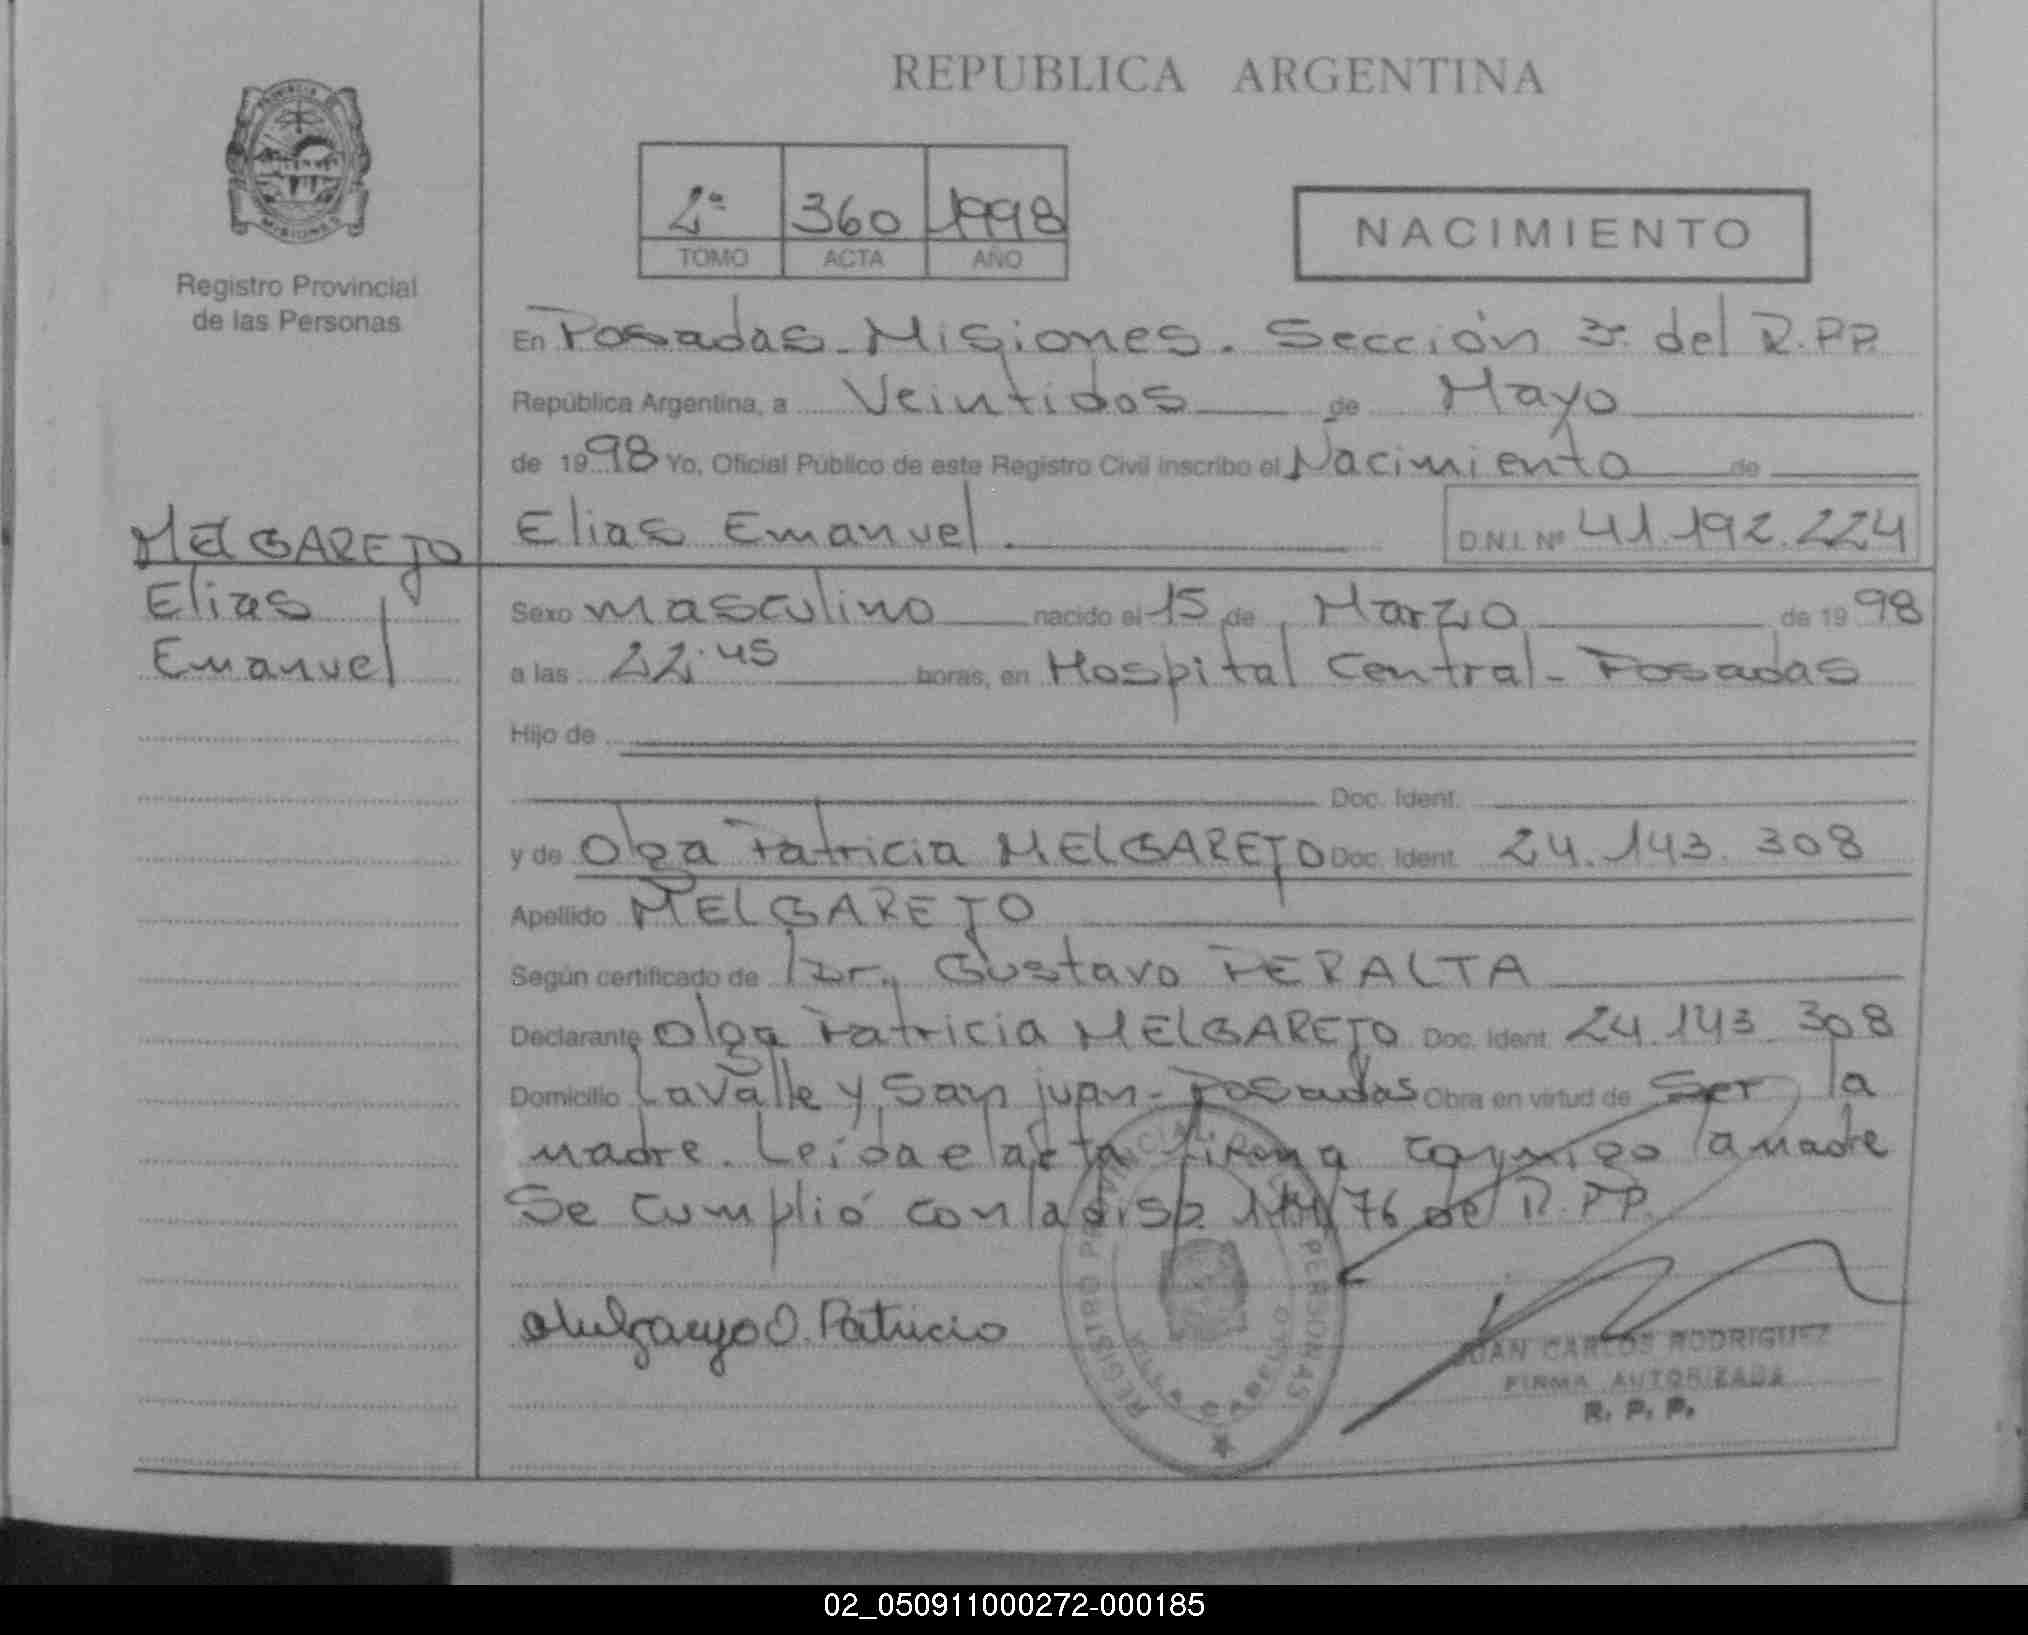 REPUBLICA ARGENTINA
PROVINCIA
MISIONES
Registro Provincial
de las Personas
2º 360 1998
TOMO ACTA AÑO
NACIMIENTO
En Posadas - Misiones. Sección 3ª del R.P.P.
República Argentina, a Veintidos de Mayo
de 1998 Yo, Oficial Público de este Registro Civil inscribo el Nacimiento de
MELGAREJO
Elias Emanuel D.N.I. Nº 41.192.224
Elias
Emanuel
Sexo masculino nacido el 15 de Marzo de 1998
a las 22:45 horas, en Hospital Central - Posadas
Hijo de
Doc. Ident.
y de Olga Patricia MELGAREJO Doc. Ident. 24.143.308
Apellido MELGAREJO
Según certificado de Dr. Gustavo PERALTA
Declarante Olga Patricia MELGAREJO Doc. Ident. 24.143.308
Domicilio Lavalle y San juan - Posadas Obra en virtud de Ser la
madre. Leida el acta firma conmigo la madre
Se cumplió con la disp. 111/76 del R.P.P.
Melgarejo O. Patricia
REGISTRO PROVINCIAL PERSONAS
JUAN CARLOS RODRIGUEZ
FIRMA AUTORIZADA
R. P. P.
02_050911000272-000185